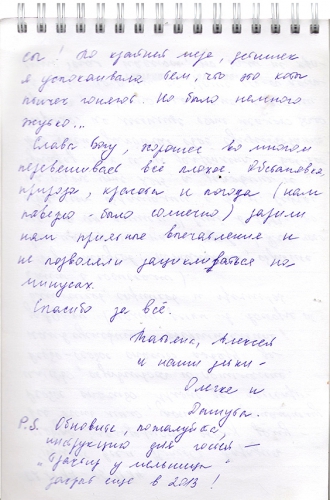 сы! По крайней мере, девчонек
я успокаивала тем, что это коты
птичек гоняют. Но было немного
жутко...
Слава Богу, хорошее во многом
перевешивает всё плохое. Обстановка,
природа, красоты и погода (нам
повезло - было солнечно) дарили
нам приятные впечатления и
не позволяли зацикливаться на
минусах.
Спасибо за всё.
Татьяна, Алексей
и наши дети -
Олежка и
P.S. Обновите, пожалуйста
инструкцию для гостей —
"Трактир у мельницы"
закрыт ещё в 2013!